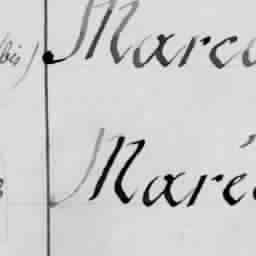 bis) Marc
Maré